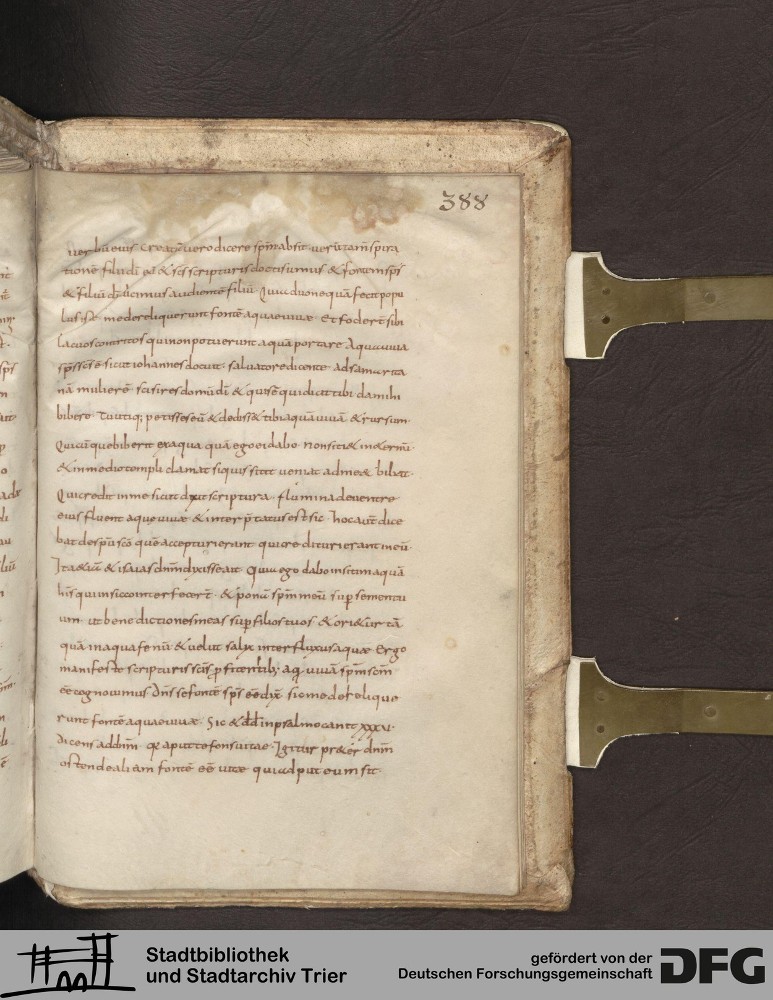 388
uerbu eius creatū uero dicere spm absit
tione filii di & scis scripturis docti sumus &
& filiū dī dicimus audiente filiū quia duo nequā fecit popu
lus iste me dereliquerunt fonte aquae uiuae. Et foder sibi
lacus contritos qui non potuerunt aquā portare Aquā uiuā
spm scm ēē sicut iohannes docuit. saluatore dicente ad samarita
nā mulierē si scires donū dī & quis ē qui dicit tibi da mihi
bibere. Tu utiq; petisses eū & dediss& tibi aquā uiuā & rursum.
Quicūque biberit ex aqua quā ego ei dabo non siti& in &ernū.
& in medio templi clamat si quis sitit ueniat ad me & bibat.
Qui credit in me sicut dixit scriptura. flumina de uentre
eius fluent aque uiuae & inter p̄tatus est sic. hoc autē dice
bat de spū scō quē accepturi erant qui credituri erant in eū.
Ita & in isaias dnm dixisse ait. Quia ego dabo in siti aquā
his qui in sicco inter fecerit. & ponā spm meū sup semen tu
um. ut benedictiones meas sup filios tuos & ori&ur tā
quā in aqua fenū & uelut salix inter fluxus aquae Ergo
manifeste scripturis scis p fitentib; aquā uiuā spm scm
ēē cognouimus Dns se fonte sps ēē dix sic me derelique
runt fontē aquae uiuae. Sic & dd in psalmo cantat xxxv.
dicens ad dnm. qr aput te fons uitae. Igitur praeter dnm
ostende aliam fontē ēē uitae quia aput eum sit.
Stadtbibliothek
und Stadtarchiv Trier
gefördert von der
Deutschen Forschungsgemeinschaft
DFG